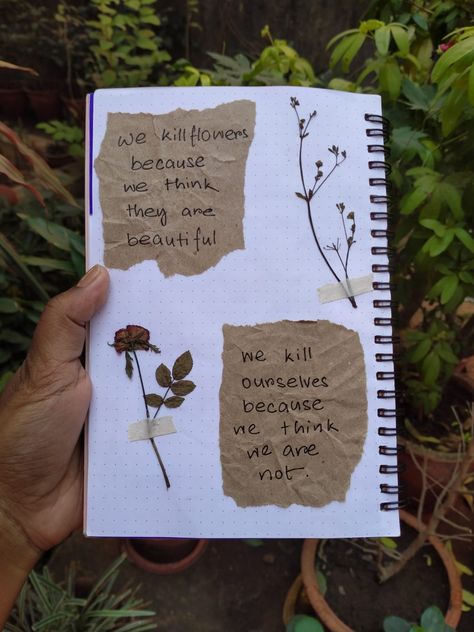 we killflowers
because
we think
they are
beautiful
we kill
ourselves
because
we think
we are
not.